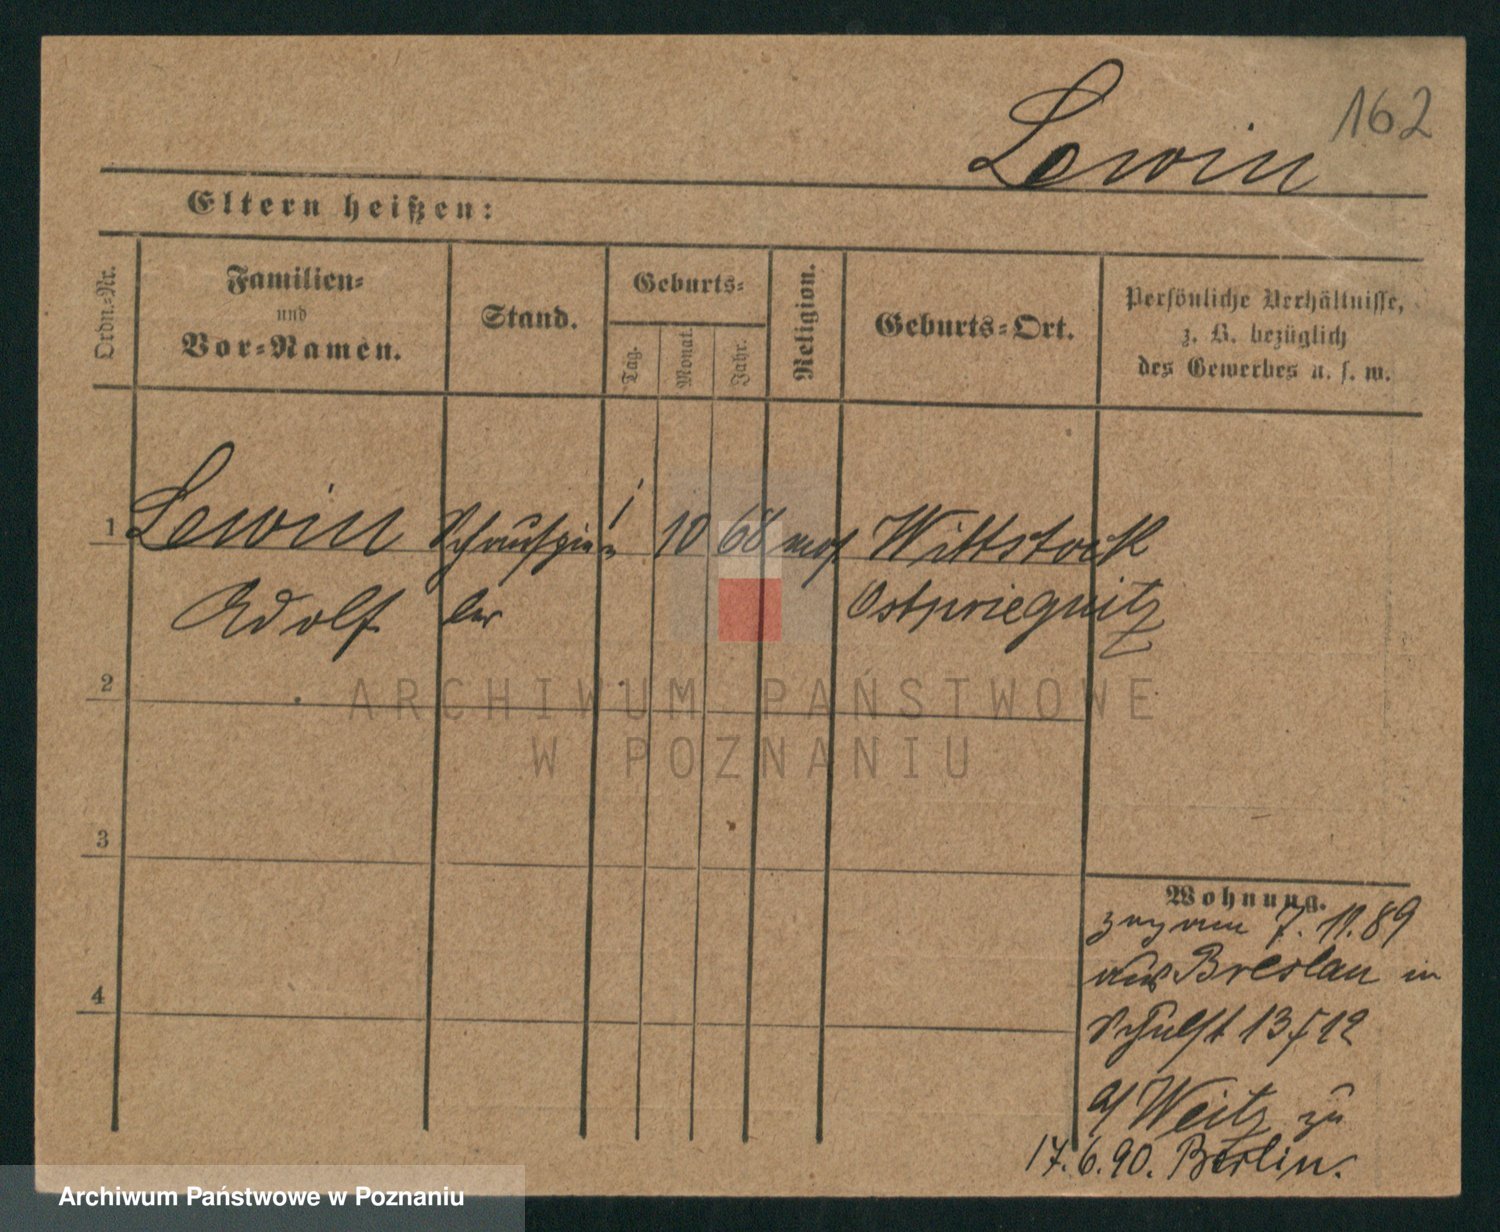 162
Lewin
Eltern heißen:
Ordn.-Nr.
Familien-
und
Vor-Namen.
Stand.
Geburts-
Tag.
Monat.
Jahr.
Religion.
Geburts-Ort.
Persönliche Verhältnisse,
z. B. bezüglich
des Gewerbes u. s. w.
1 Lewin Schauspie- 1 10 68 mos. Wittstock
Adolf ler Ostpriegnitz
2
3
4
Wohnung.
zog am 7. 11. 89
aus Breslau in
Schulst 13
a/ Weitz zu
17.6.90. Berlin.
ARCHIWUM PAŃSTWOWE
W POZNANIU
Archiwum Państwowe w Poznaniu